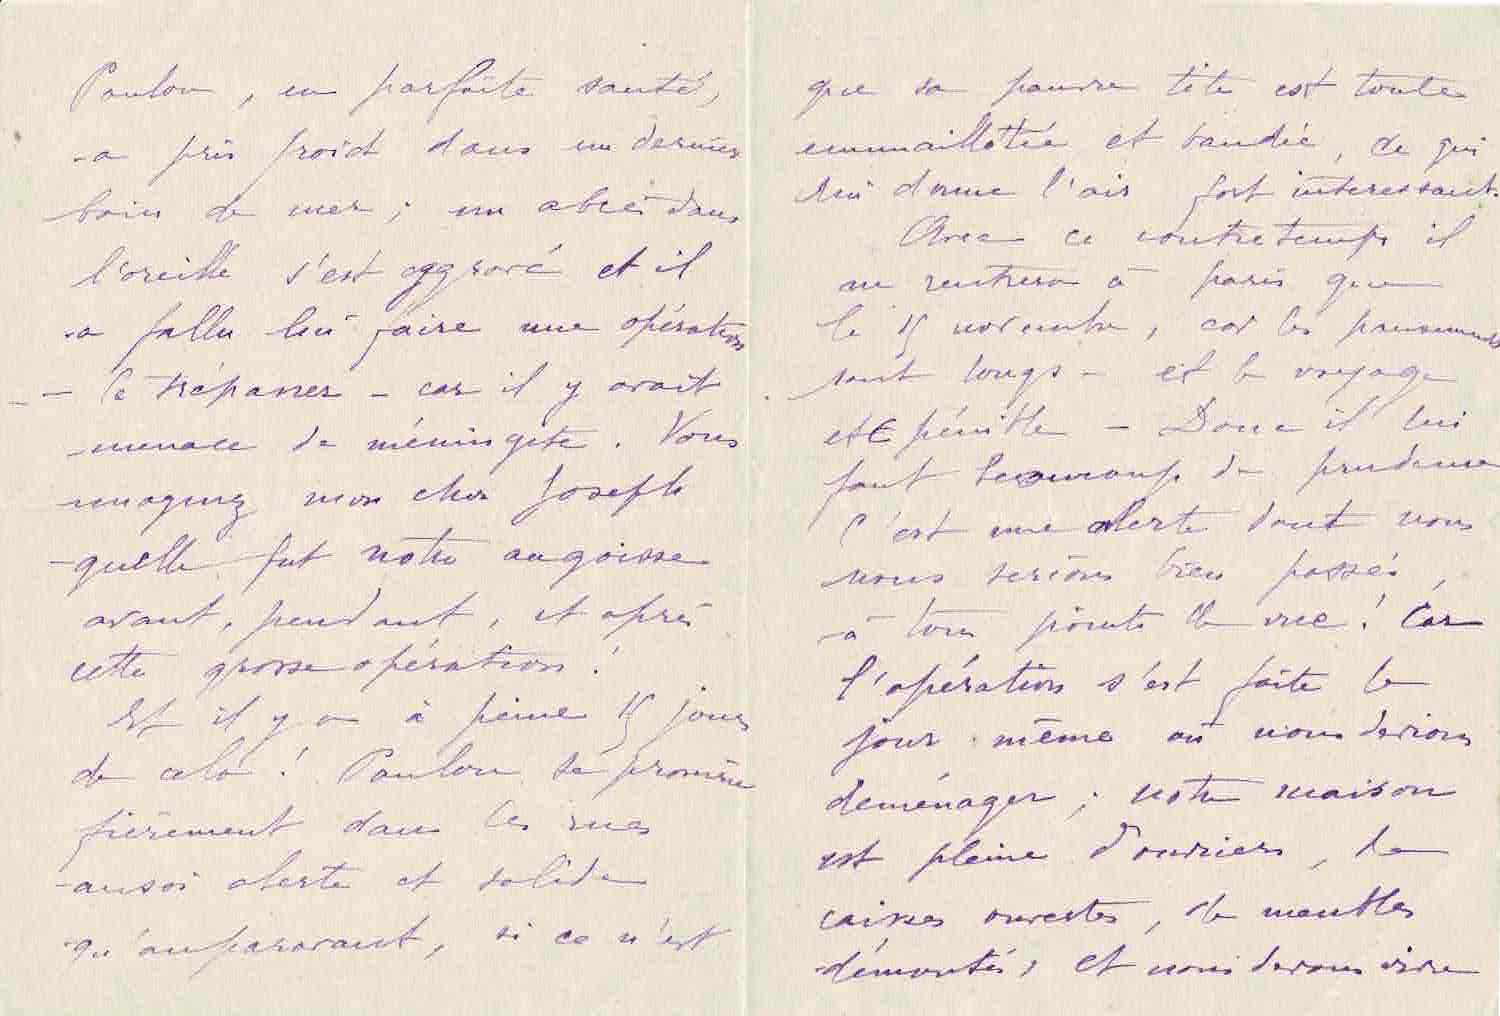 Poulou, en parfaite santé,
a pris froid dans un dernier
bain de mer ; un abcès dans
l'oreille s'est aggravé et il
a fallu lui faire une opération
— le trépaner — car il y avait
menace de méningite. Vous
imaginez mon cher Joseph
quelle fut notre angoisse
avant, pendant, et après
cette grosse opération !
Et il y a à peine 15 jours
de cela ! Poulou se promène
fièrement dans les rues
aussi alerte et solide
qu'auparavant, si ce n'est
que sa pauvre tête est toute
emmaillotée et bandée, ce qui
lui donne l'air fort intéressant.
Avec ce contretemps il
ne rentrera à Paris que
le 15 novembre, car les pansements
sont longs — et le voyage
est pénible — Donc il lui
faut beaucoup de prudence
C'est une alerte dont nous
nous serions bien passés,
à tous points de vue ! Car
l'opération s'est faite le
jour même où nous devions
déménager ; notre maison
est pleine d'ouvriers, de
caisses ouvertes, de meubles
démontés, et nous devons vivre